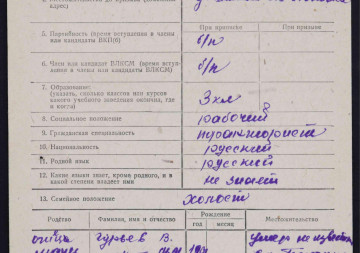 адрес)
При приписке
При призыве
5. Партийность (время вступления в члены
или кандидаты ВКП(б)
б/п
6. Член или кандидат ВЛКСМ (время всту-
пления в члены или кандидаты ВЛКСМ)
б/п
7. Образование:
(указать, сколько классов или курсов
какого учебного заведения окончил, где
и когда)
3 кл
8. Социальное положение
рабочий
9. Гражданская специальность
10. Национальность
русский
11. Родной язык
русский
12. Какие языки знает, кроме родного, и в
какой степени владеет ими
не знает
13. Семейное положение
холост
Родство
Фамилия, имя и отчество
Рождение
Местожительство
год
месяц
отец
Гурьев В.
умер